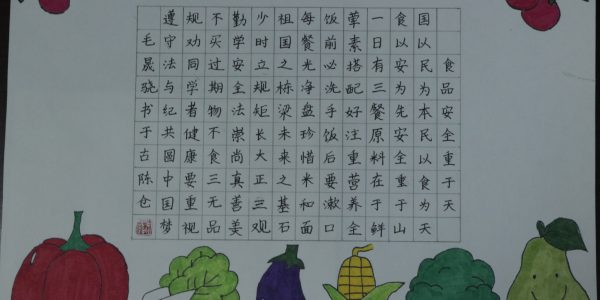 食品安全重于天
国以民为本民以食为天
食以安为先安全重于山
一日有三餐原料在于鲜
荤素搭配好注重营养全
饭前必洗手饭后要漱口
每餐光净盘珍惜米和面
祖国之栋梁未来之基石
少时立规矩长大正三观
勤学安全法崇尚真善美
不买过期物不食三无品
规劝同学者健康要重视
遵守法与纪共圆中国梦
毛晟骁书于古陈仓